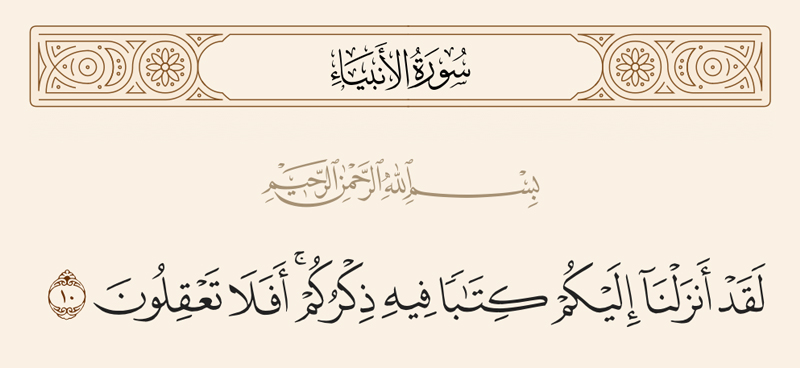 سُورَةُ الأَنبِيَاءِ
بِسْمِ اللَّهِ الرَّحْمَٰنِ الرَّحِيمِ
لَقَدْ أَنزَلْنَآ إِلَيْكُمْ كِتَٰبًا فِيهِ ذِكْرُكُمْ ۚ أَفَلَا تَعْقِلُونَ ١٠